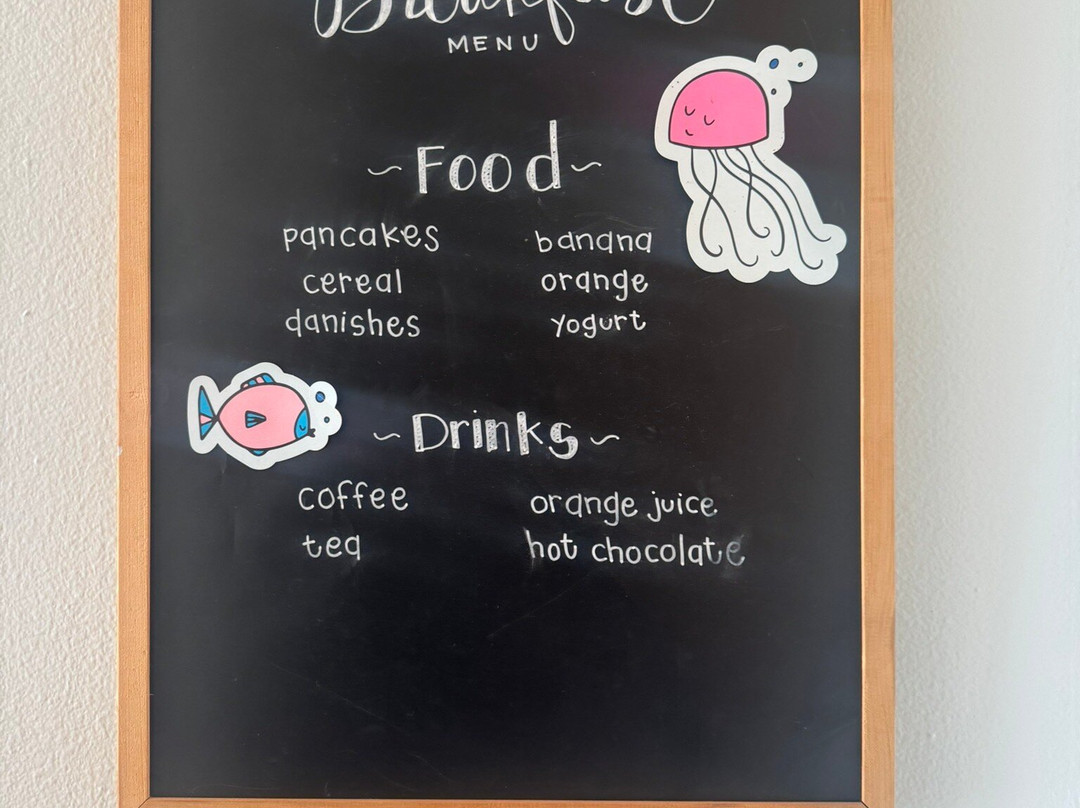 Breakfast
MENU
~Food~
pancakes banana
cereal orange
danishes yogurt
~Drinks~
coffee orange juice
tea hot chocolate